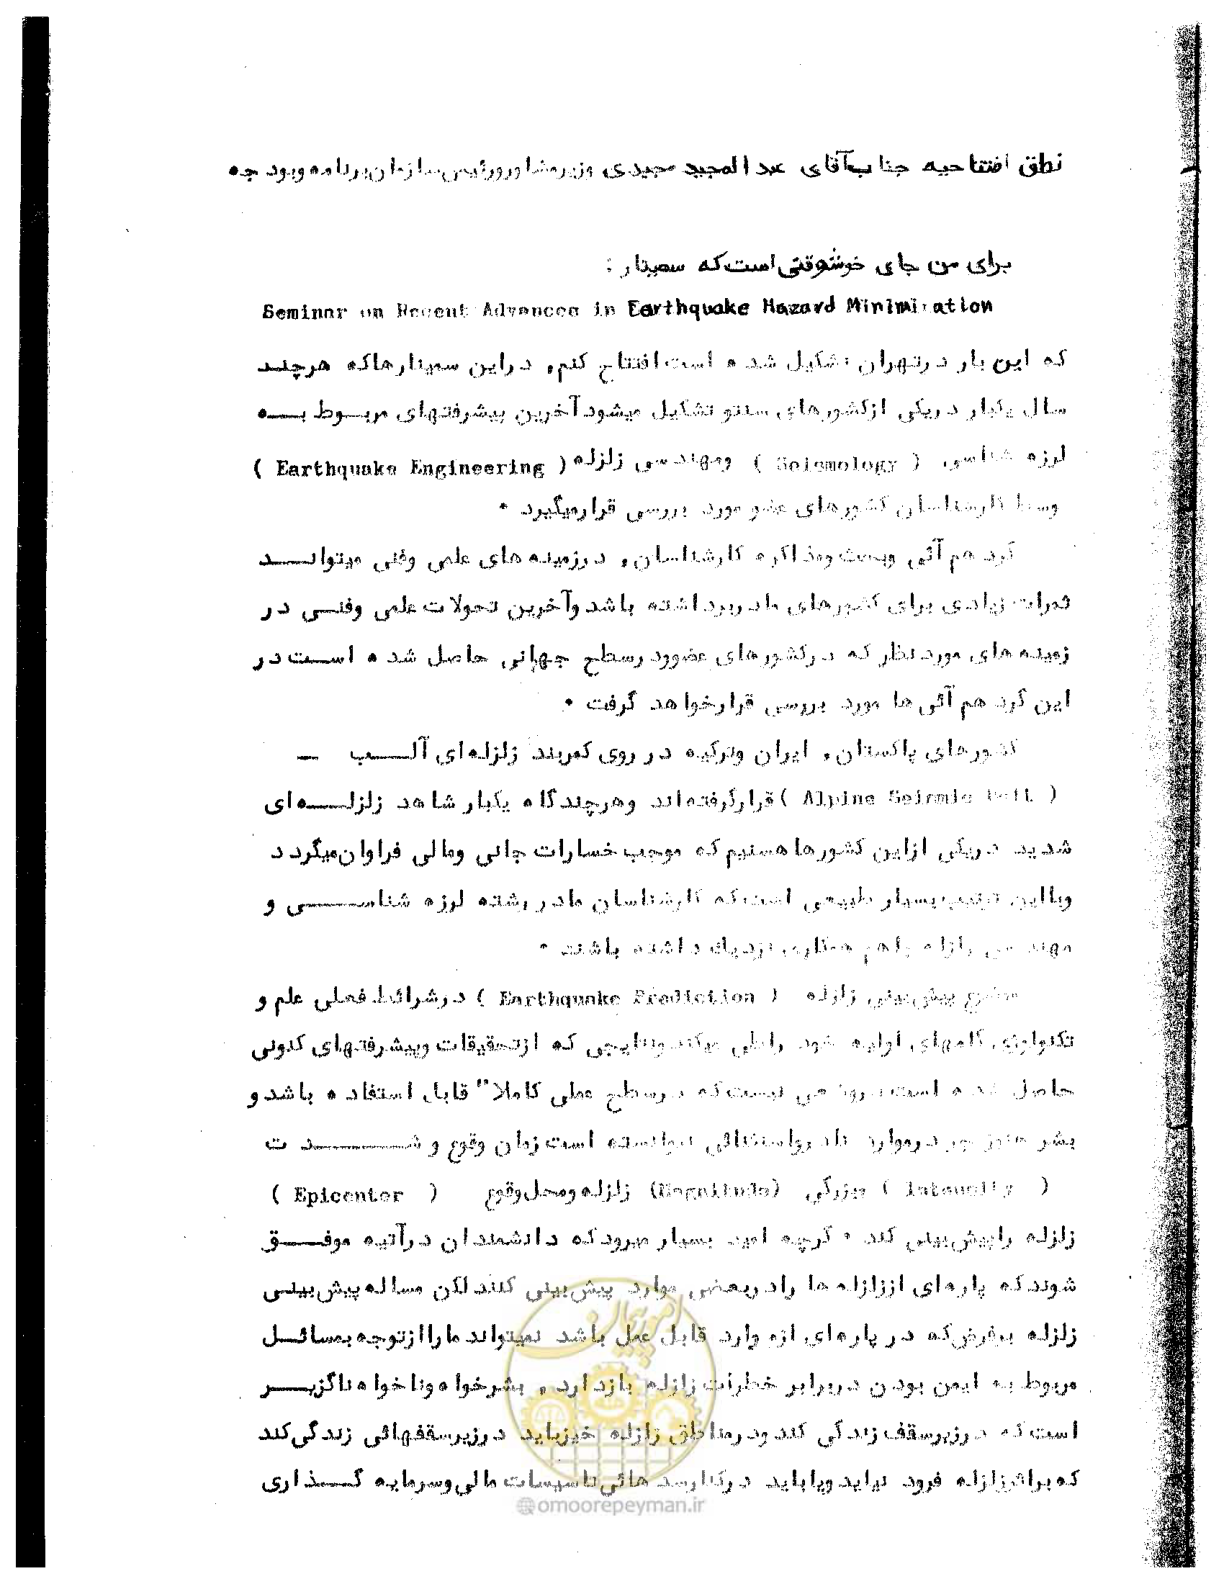 نطق افتتاحیه جناب‌آقای عبدالمجید مجیدی وزیرمشاور ورئیس‌سازمان‌برنامه وبودجه
برای من جای خوشوقتی است که سمینار :
Seminar on Recent Advances in Earthquake Hazard Minimization
که این بار درتهران تشکیل شده است افتتاح کنم, دراین سمینارها که هرچند
سال یکبار دریکی ازکشورهای سنتو تشکیل میشود آخرین پیشرفتهای مربوط بـــه
لرزه شناسی ( Seismology ) ومهندسی زلزله ( Earthquake Engineering )
وسط کارشناسان کشورهای عضو مورد بررسی قرارمیگیرد .
گرد هم آئی وبحث ومذاکره کارشناسان, درزمینه های علمی وفنی میتوانـــد
ثمرات زیادی برای کشورهای مادربرداشته باشد وآخرین تحولات علمی وفنـی در
زمینه های مورد نظر که درکشورهای عضوودرسطح جهانی حاصل شده اســت در
این گرد هم آئی ها مورد بررسی قرارخواهد گرفت .
کشورهای پاکستان, ایران وترکیه در روی کمربند زلزله‌ای آلـــب –
( Alpine Seismic Belt ) قرارگرفته‌اند وهرچندگاه یکبار شاهد زلزلــه‌ای
شدید دریکی ازاین کشورها هستیم که موجب خسارات جانی ومالی فراوان میگردد
وبااین ترتیب بسیار طبیعی است که کارشناسان مادررشته لرزه شناســـی و
مهندسی زلزله باهم همکاری نزدیک داشته باشند .
موضوع پیش‌بینی زلزله ( Earthquake Prediction ) درشرائط فعلی علم و
تکنولوژی گامهای اولیه خود راطی میکند ونتایجی که ازتحقیقات وپیشرفتهای کنونی
حاصل شده است بروزهی نیست که درسطح عملی کاملا" قابل استفاده باشد و
بشر هنوز جز درموارد نادرواستثنائی نتوانسته است زمان وقوع و شـــــدت
( Intensity ) وبزرگی (Magnitude) زلزله ومحل وقوع ( Epicenter )
زلزله راپیش‌بینی کند . گرچه امید بسیار میرود که دانشمندان درآتیه موفــق
شوند که پاره‌ای اززلزله ها رادربعضی موارد پیش‌بینی کنند لکن مساله پیش‌بینـی
زلزله برفرض که در پاره‌ای ازموارد قابل عمل باشد نمیتواند ماراازتوجه بمسائــل
مربوط به ایمن بودن دربرابر خطرات زلزله بازدارد, بشرخواه وناخواه ناگزیـــر
است که درزیرسقف زندگی کند ودرمناطق زلزله خیزباید درزیرسقفهائی زندگی کند
که براثرزلزله فرود نیاید ویاباید درکنارسدهائی تاسیسات مالی وسرمایه گـــذاری
امور پیمان
@omoorepeyman.ir